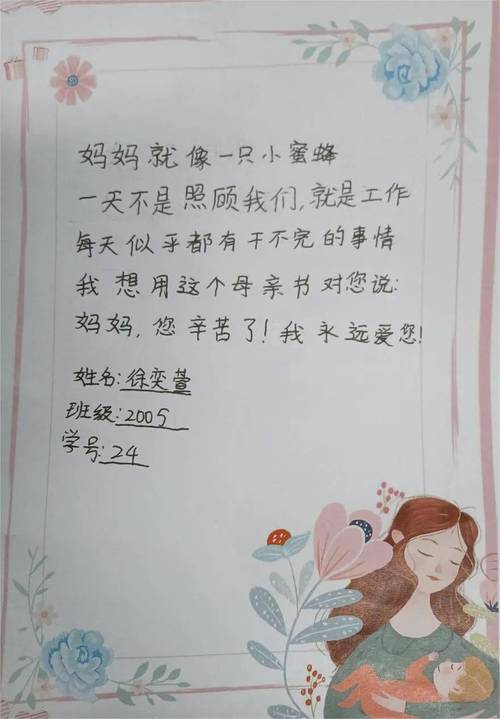 妈妈就像一只小蜜蜂
一天不是照顾我们,就是工作
每天似乎都有干不完的事情
我想用这个母亲书对您说:
妈妈,您辛苦了!我永远爱您!
姓名:徐奕萱
班级:2005
学号:24